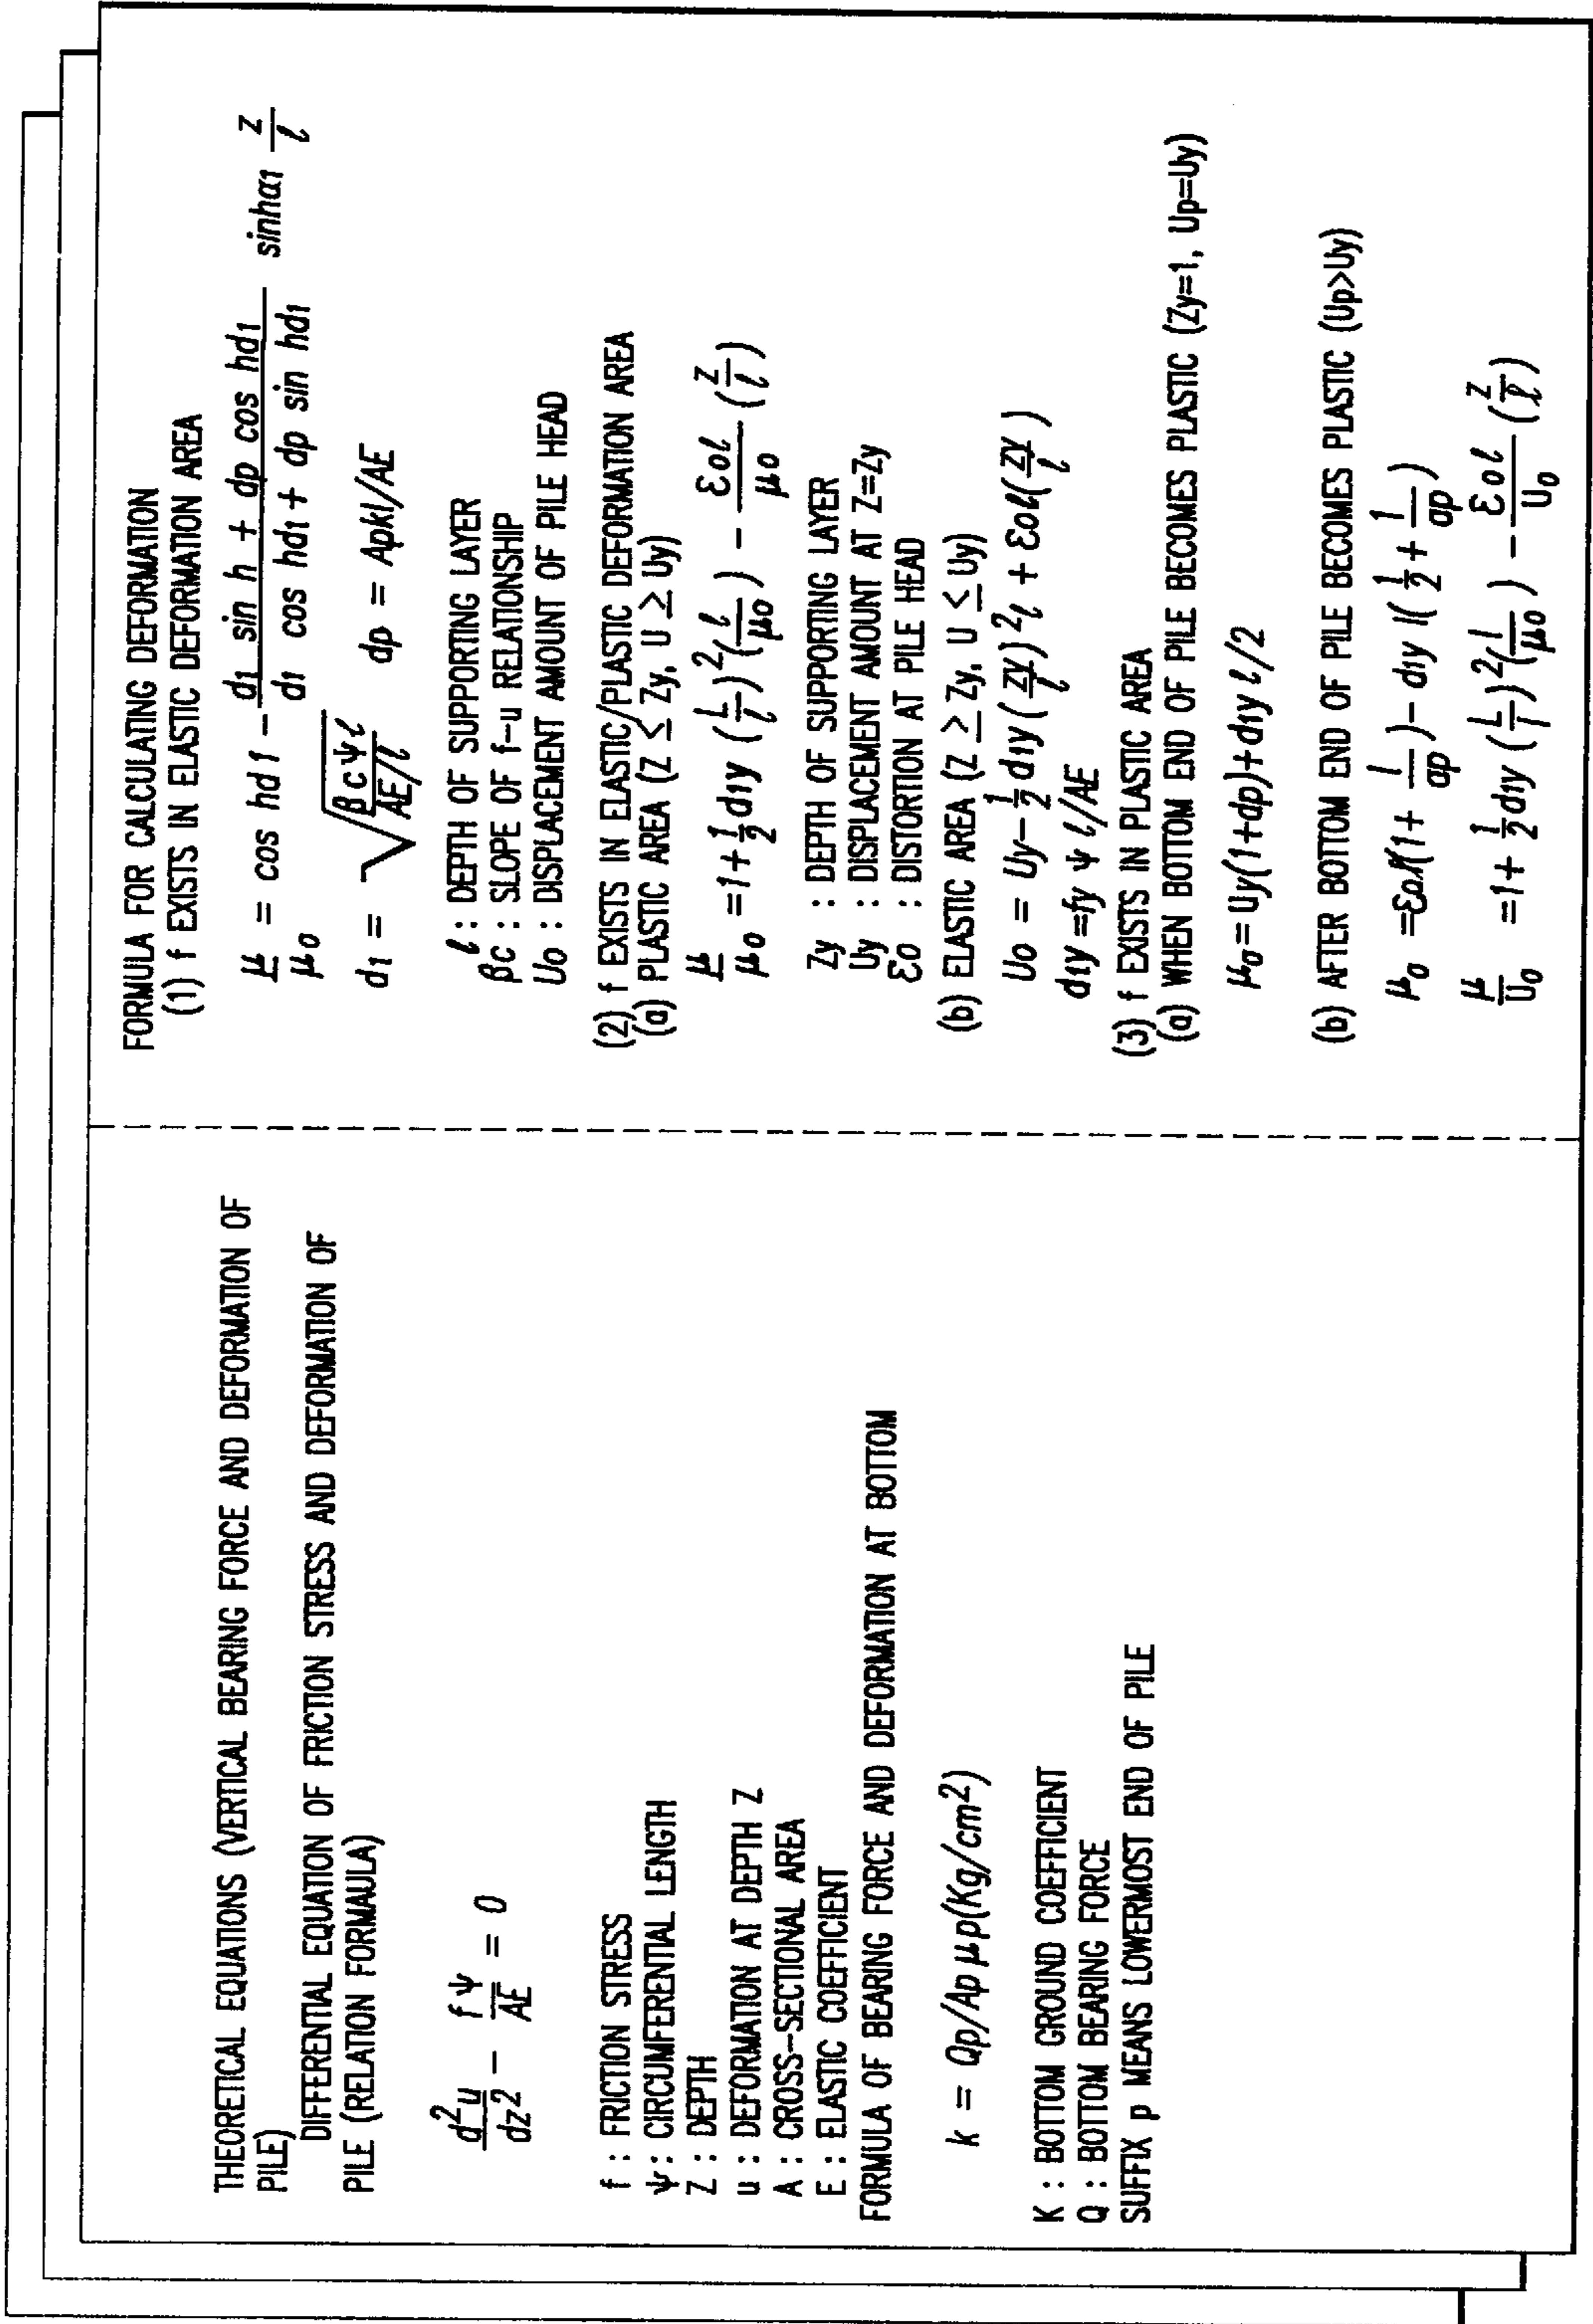 THEORETICAL EQUATIONS (VERTICAL BEARING FORCE AND DEFORMATION OF
PILE)
DIFFERENTIAL EQUATION OF FRICTION STRESS AND DEFORMATION OF
PILE (RELATION FORMAULA)
d²u/dz² − fψ/AE = 0
f : FRICTION STRESS
ψ : CIRCUMFERENTIAL LENGTH
Z : DEPTH
u : DEFORMATION AT DEPTH Z
A : CROSS-SECTIONAL AREA
E : ELASTIC COEFFICIENT
FORMULA OF BEARING FORCE AND DEFORMATION AT BOTTOM
k = Qp/Ap μp(Kg/cm²)
K : BOTTOM GROUND COEFFICIENT
Q : BOTTOM BEARING FORCE
SUFFIX p MEANS LOWERMOST END OF PILE
FORMULA FOR CALCULATING DEFORMATION
(1) f EXISTS IN ELASTIC DEFORMATION AREA
μ/μo = cos hd1 − (d1 sin h + dp cos hd1)/(d1 cos hd1 + dp sin hd1) sinhα1 z/ℓ
d1 = √(βcψℓ/(AE/ℓ)) dp = Apkl/AE
ℓ : DEPTH OF SUPPORTING LAYER
βc : SLOPE OF f-u RELATIONSHIP
Uo : DISPLACEMENT AMOUNT OF PILE HEAD
(2) f EXISTS IN ELASTIC/PLASTIC DEFORMATION AREA
(a) PLASTIC AREA (Z ≤ Zy, U ≥ Uy)
μ/μo = 1+½d1y (L/ℓ)²(ℓ/μo) − εoℓ/μo (z/ℓ)
Zy : DEPTH OF SUPPORTING LAYER
Uy : DISPLACEMENT AMOUNT AT Z=Zy
εo : DISTORTION AT PILE HEAD
(b) ELASTIC AREA (Z ≥ Zy, U ≤ Uy)
Uo = Uy−½d1y(zy/ℓ)²ℓ + εoℓ(zy/ℓ)
d1y =fy ψ ℓ/AE
(3) f EXISTS IN PLASTIC AREA
(a) WHEN BOTTOM END OF PILE BECOMES PLASTIC (Zy=1, Up=Uy)
μo= Uy(1+dp)+d1y ℓ/2
(b) AFTER BOTTOM END OF PILE BECOMES PLASTIC (Up>Uy)
μo =εoℓ(1+ 1/ap)− d1y l(½+ 1/ap)
μ/Uo =1+ ½d1y (L/l)²(1/μo) − εoℓ/Uo (z/ℓ)